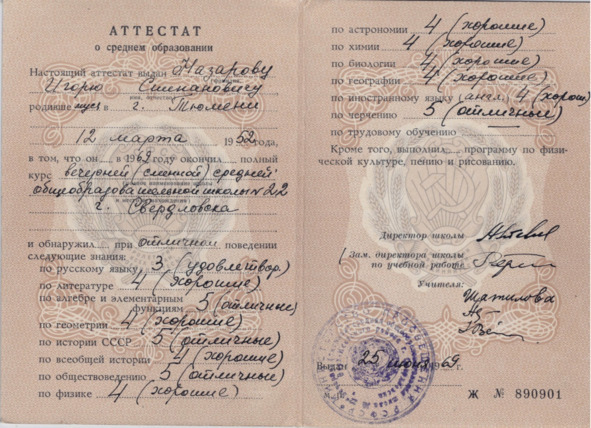 АТТЕСТАТ
о среднем образовании
Настоящий аттестат выдан Назарову
Игорю Степановичу
родившемуся в г. Тюмени
12 марта 1952 года,
в том, что он в 1969 году окончил полный
курс вечерней (сменной) средней
общеобразовательной школы № 22
г. Свердловска
и обнаружил при отличном поведении
следующие знания:
по русскому языку 3 (удовлетвор.)
по литературе 4 (хорошие)
по алгебре и элементарным
функциям 5 (отличные)
по геометрии 4 (хорошие)
по истории СССР 5 (отличные)
по всеобщей истории 4 (хорошие)
по обществоведению 5 (отличные)
по физике 4 (хорошие)
по астрономии 4 (хорошие)
по химии 4 (хорошие)
по биологии 4 (хорошие)
по географии 4 (хорошие)
по иностранному языку (англ.) 4 (хорош)
по черчению 5 (отличные)
по трудовому обучению —
Кроме того, выполнил программу по физи-
ческой культуре, пению и рисованию.
Директор школы
Зам. директора школы
по учебной работе
Учителя:
Шатилова
Выдан 25 июня 1969 г.
Ж № 890901